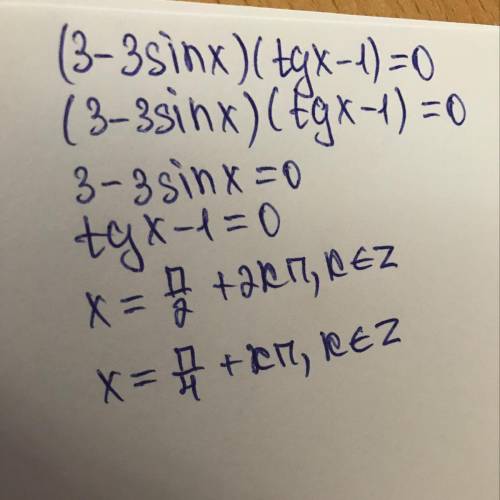 (3-3sinx)(tgx-1)=0
(3-3sinx)(tgx-1)=0
3-3sinx=0
tgx-1=0
x=П/2+2кП, к∈Z
x=П/4+кП, к∈Z